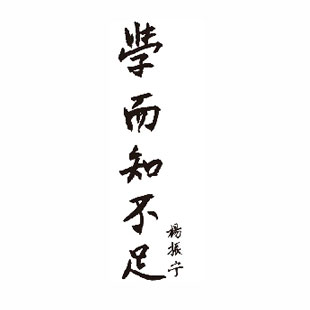 學而知不足
楊振宁